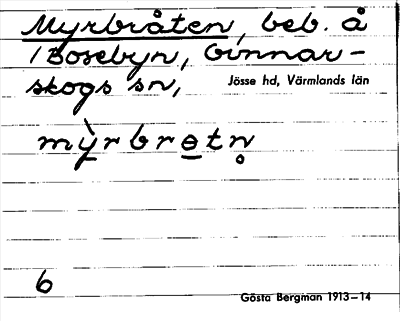 Myrbråten, beb. å
1 Bosebyn, Gunnar-
skogs sn,
Jösse hd, Värmlands län
mỳrbretn̥
6
Gösta Bergman 1913–14